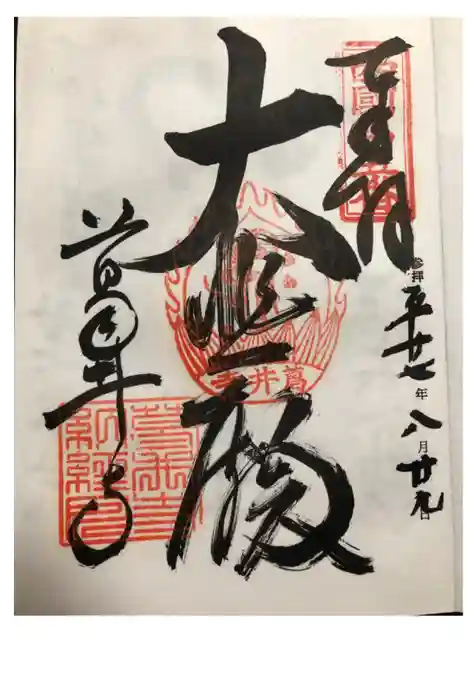 奉拝
参拝 平廿七年八月廿九日
大悲殿
葛井寺
葛井寺